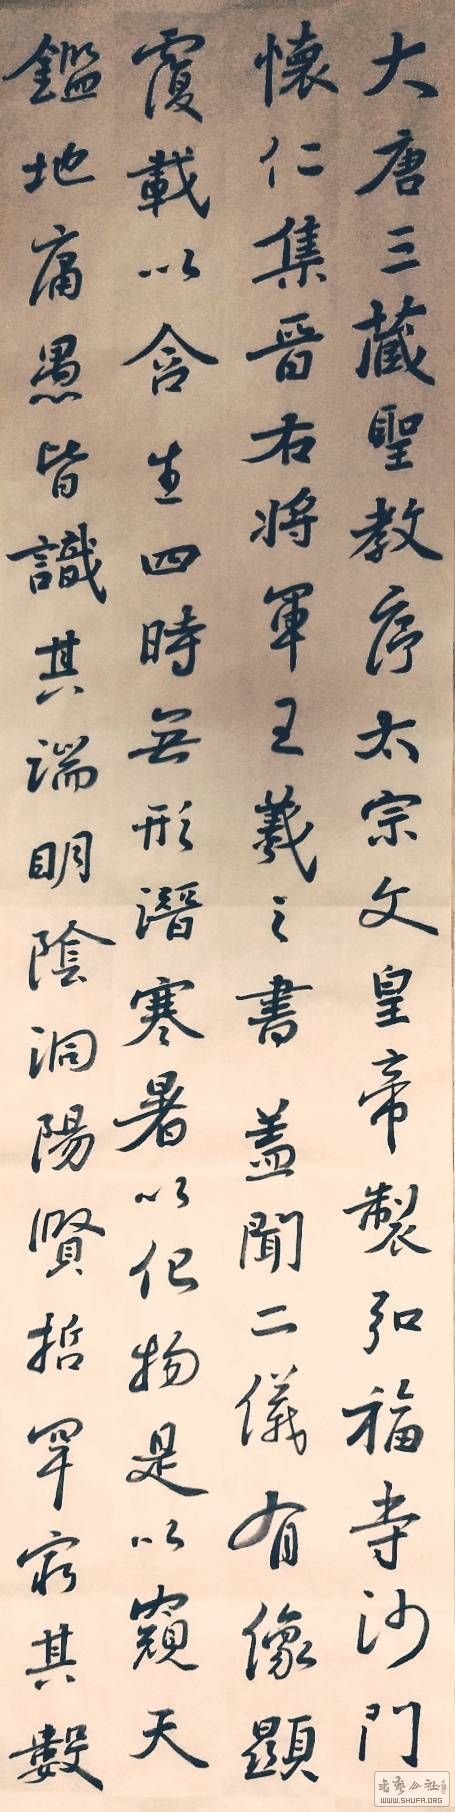 大唐三藏聖教序太宗文皇帝製弘福寺沙門
懷仁集晉右將軍王羲之書蓋聞二儀有像顯
覆載以含生四時無形潛寒暑以化物是以窺天
鑑地庸愚皆識其端明陰洞陽賢哲罕窮其數
WWW.SHUFA.ORG